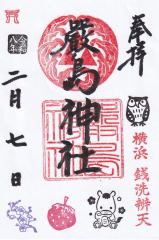 奉拝
嚴島神社
横浜 銭洗辨天
令和
八年
二月七日